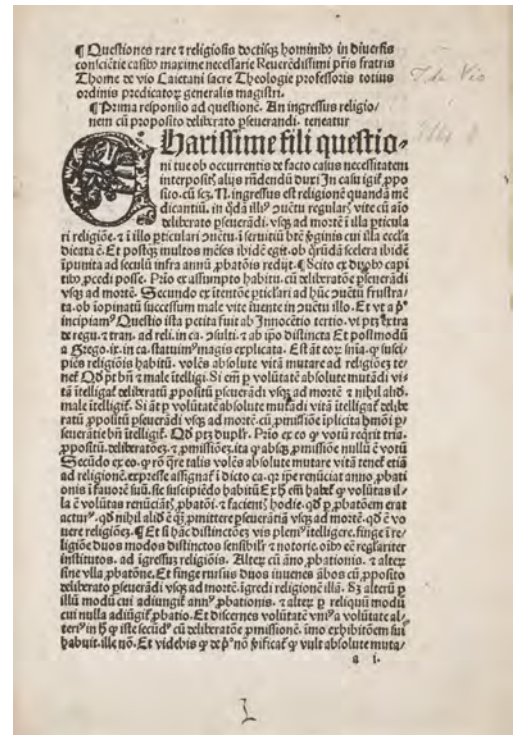 ¶ Questiones rare ⁊ religiosis doctisq̃ hominibꝰ in diuersis
consciẽtie casibꝰ maxime necessarie Reuerẽdissimi pr̃is fratris
Thome de vio Caietani sacre Theologie professoris totius
ordinis predicatoꝝ generalis magistri.
¶ Prima responsio ad questionẽ. An ingressus religio/
nem cũ proposito deliberato ꝑseuerandi. teneatur
CHarissime fili questio-
ni tue ob occurrentis de facto casus necessitatem
interpositis alijs rñdendũ duxi In casu igit̃ ꝓpo
sito. cũ scꝫ. N. ingressus est religionẽ quandã mẽ
dicantiũ. in q̃dã illiꝰ ꝯuẽtu regularis vite cũ aĩo
deliberato ꝑseuerãdi. vsqꝫ ad mortẽ ĩ illa ꝑticula
ri religiõe. ⁊ ĩ illo ꝑticulari ꝯuẽtu. ĩ seruitiũ btẽ ṽginis cui illa eccl'a
dicata ẽ. Et postqꝫ multos mẽses ibidẽ egit. ob q̃rũdã scelera ibidẽ
ĩpunita ad seculũ infra annũ ꝓbatõis redijt. ¶ Scito ex duobꝰ capi
tibꝰ ꝓcedi posse. Prĩo ex assumpto habitu. cũ deliberatõe ꝑseuerãdi
vsqꝫ ad mortẽ. Secundo ex itentõe ꝑticl'ari ad hũc ꝯuẽtũ frustra/
ta. ob ĩopinatũ successum male vite ĩuente in ꝯuẽtu illo. Et vt a pͦ
incipiamꝰ Questio ista petita fuit ab Innocẽtio tertio. vt ptꝫ extra
de regu. ⁊ tran. ad reli. in ca. ꝯsulti. ⁊ ab ipo distincta Et postmodũ
a Grego. ix. in ca. statuimꝰ magis explicata. Est ãt eoꝝ sñia. qꝰ susci/
piẽs religiõis habitũ. volẽs absolute vitã mutare ad religiõeꝫ te/
net̃ Qđ pt bñ ⁊ male ĩtelligi. Si em̃ ꝑ volũtatẽ absolute mutãdi vi/
tã ĩtelligat̃ deliberatũ ꝓpositũ ꝑseuerãdi vsqꝫ ad mortẽ ⁊ nihil aliđ.
male ĩtelligit̃. Si ãt ꝑ volũtatẽ absolute mutãdi vitã ĩtelligat̃ delibe
ratũ ꝓpositũ ꝑseuerãdi vsqꝫ ad mortẽ. cũ ꝓmissiõe ĩplicita hm̃õi ꝑ/
seueratie bñ ĩtelligit̃. Qđ ptꝫ duplr̃. Prĩo ex eo qꝰ votũ reqrit tria.
ꝓpositũ. deliberatõeꝫ. ⁊ ꝓmissiõeꝫ. ita qꝰ absqꝫ ꝓmissiõe nullũ ẽ votũ
Secũdo ex eo. qꝰ rõ q̃re talis volẽs absolute mutare vitã tenet̃ etiã
ad religionẽ. expresse assignat̃ ĩ dicto ca. qꝛ ip̃e renũciat anno ꝓbati
onis ĩ fauorẽ suũ. sic suscipiẽdo habitũ Ex h̃ em̃ habet̃ qꝰ volũtas il/
la ẽ volũtas renũciãtis ꝓbatõi. ⁊ faciẽtis hodie. qđ ꝑ ꝓbatõem erat
acturꝰ. qđ nihil aliđ ẽ q̃ꝫ ꝓmittere ꝑseueratiã vsqꝫ ad mortẽ. qđ ẽ vo
uere religiõeꝫ. ¶ Et si hãc distinctõeꝫ vis pleniꝰ ĩtelligere. finge ĩ re/
ligiõe duos modos distinctos sensibilr̃ ⁊ notorie. oĩbo eẽ reglariter
institutos. ad ĩgressuꝫ religiõis. Alteꝝ cũ ãno ꝓbationis. ⁊ alteꝝ
sine vlla ꝓbatõne. Et finge rursus duos iuuenes ãbos cũ ꝓposito
deliberato ꝑseuerãdi vsqꝫ ad mortẽ. ĩgredi religionẽ illã. Sꝫ alterũ ꝑ
illũ modũ cui adiungit̃ annꝰ ꝓbationis. ⁊ alteꝝ ꝑ reliquũ modũ
cui nulla adiũgit̃ ꝓbatio. Et discernes volũtatẽ vniꝰ a volũtate al/
teriꝰ in h̃ qꝰ iste secũdꝰ cũ deliberatõe ꝓmissionẽ. imo exhibitõem sui
habuit. ille nõ. Et videbis qꝰ de pͦ nõ ṽificat̃ qꝰ vult absolute muta/
a i.
T. de Vio
1